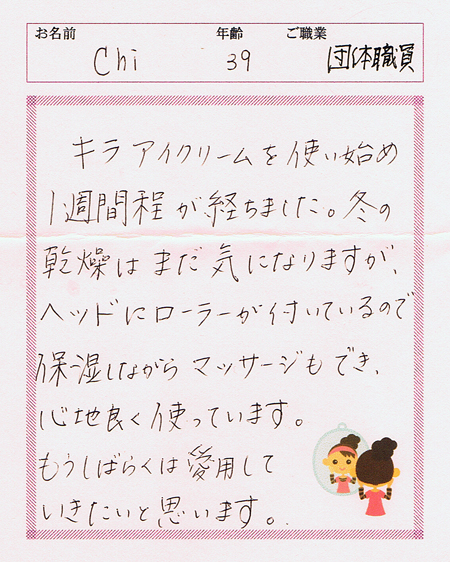 お名前 年齢 ご職業
Chi 39 団体職員
キラ アイクリームを使い始め
1週間程が経ちました。冬の
乾燥はまだ気になりますが、
ヘッドにローラーが付いているので
保湿しながらマッサージもでき、
心地良く使っています。
もうしばらくは愛用して
いきたいと思います。